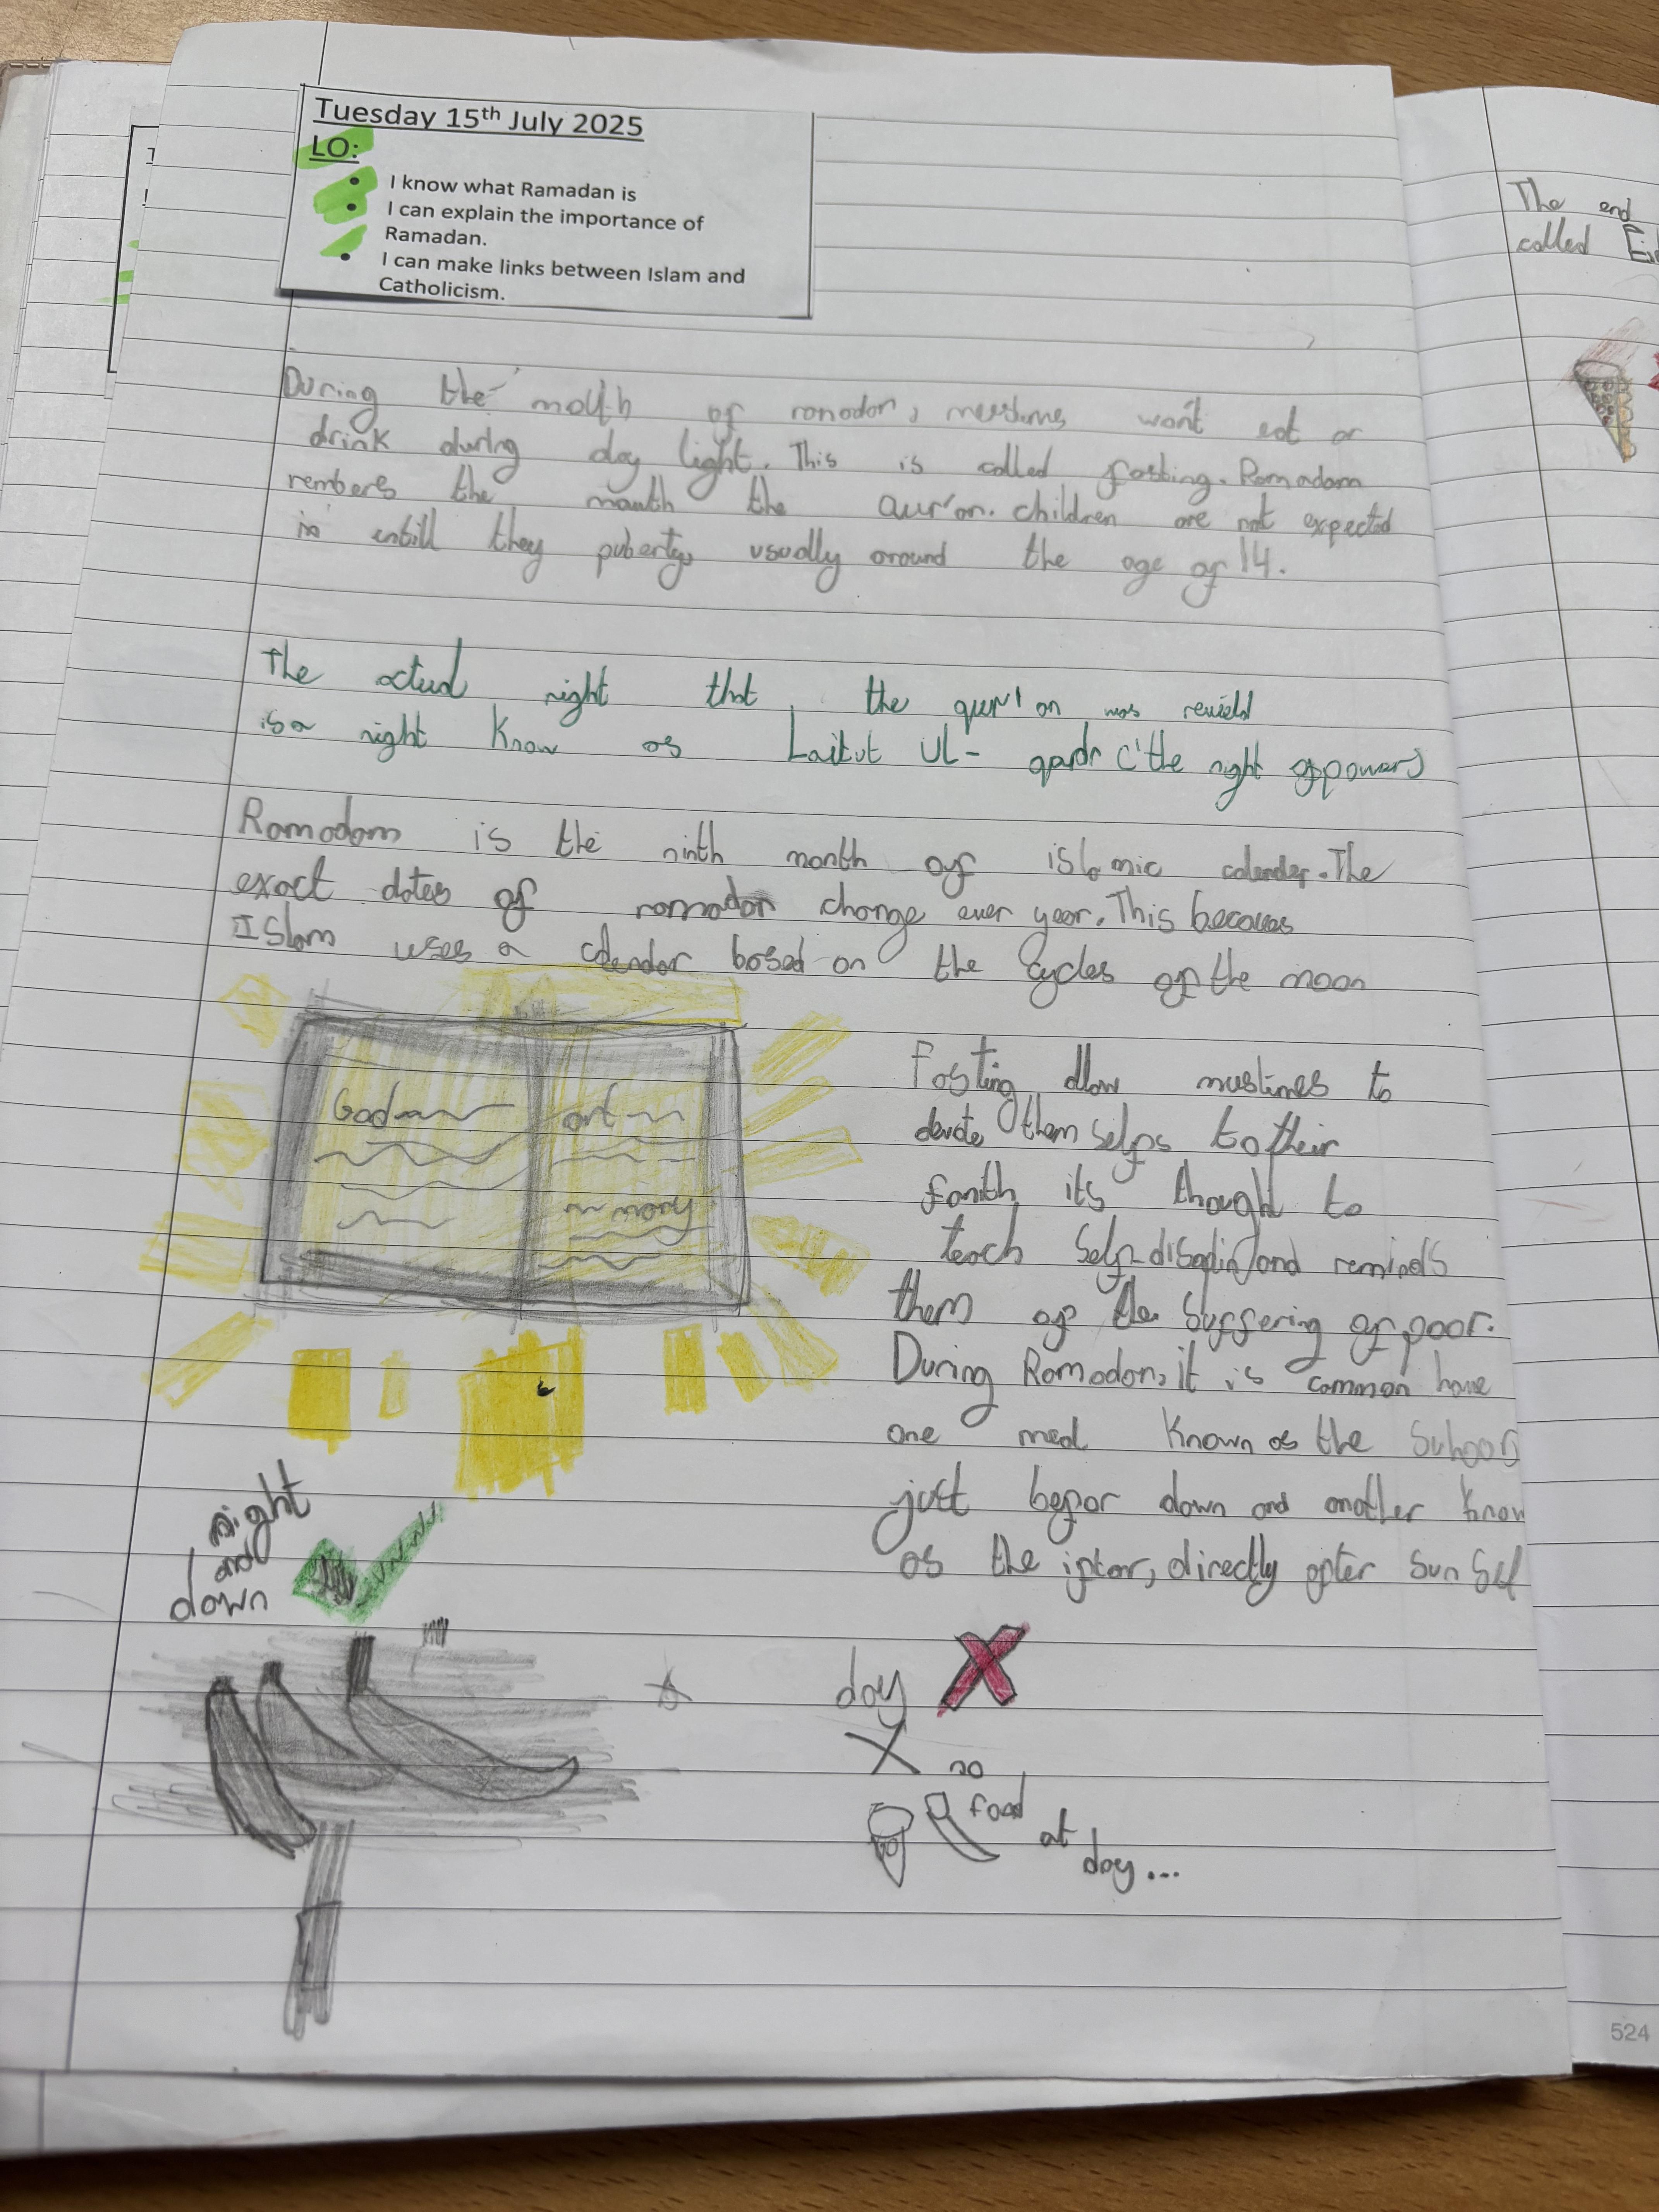 Tuesday 15th July 2025
LO:
• I know what Ramadan is
• I can explain the importance of
Ramadan.
• I can make links between Islam and
Catholicism.
During the of ronodon, won't eat or
drink during day light. This is called fasting. Romadam
rembers the the Qur'on. children are not expected
untill they puberty, usually around the age of 14.
The actual night that the qur'on was
is a night know as Ul- ("the night of power)
Romodam is the ninth month of islamic calender. The
exact dates of romadan change ever year. This
Islam uses a calendar based on the cycles of the moon
God
art
many
Fasting allow to
devote them selfs to their
its thought to
teach self- and reminds
them of the suffering of poor.
During Romodon, it is common have
one meal known as the
just befor down and another know
as the iftar, directly after sun set
night
and
down
day
no
food
at
day...
The end
called
524